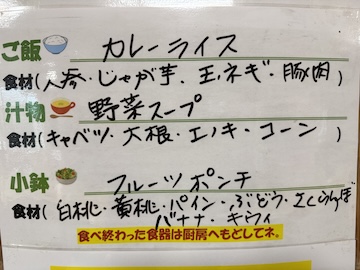 ご飯 カレーライス
食材(人参・じゃが芋・玉ネギ・豚肉)
汁物 野菜スープ
食材(キャベツ・大根・エノキ・コーン)
小鉢 フルーツポンチ
食材(白桃・黄桃・パイン・ぶどう・さくらんぼ
バナナ・キウィ
食べ終わった食器は厨房へもどしてネ。